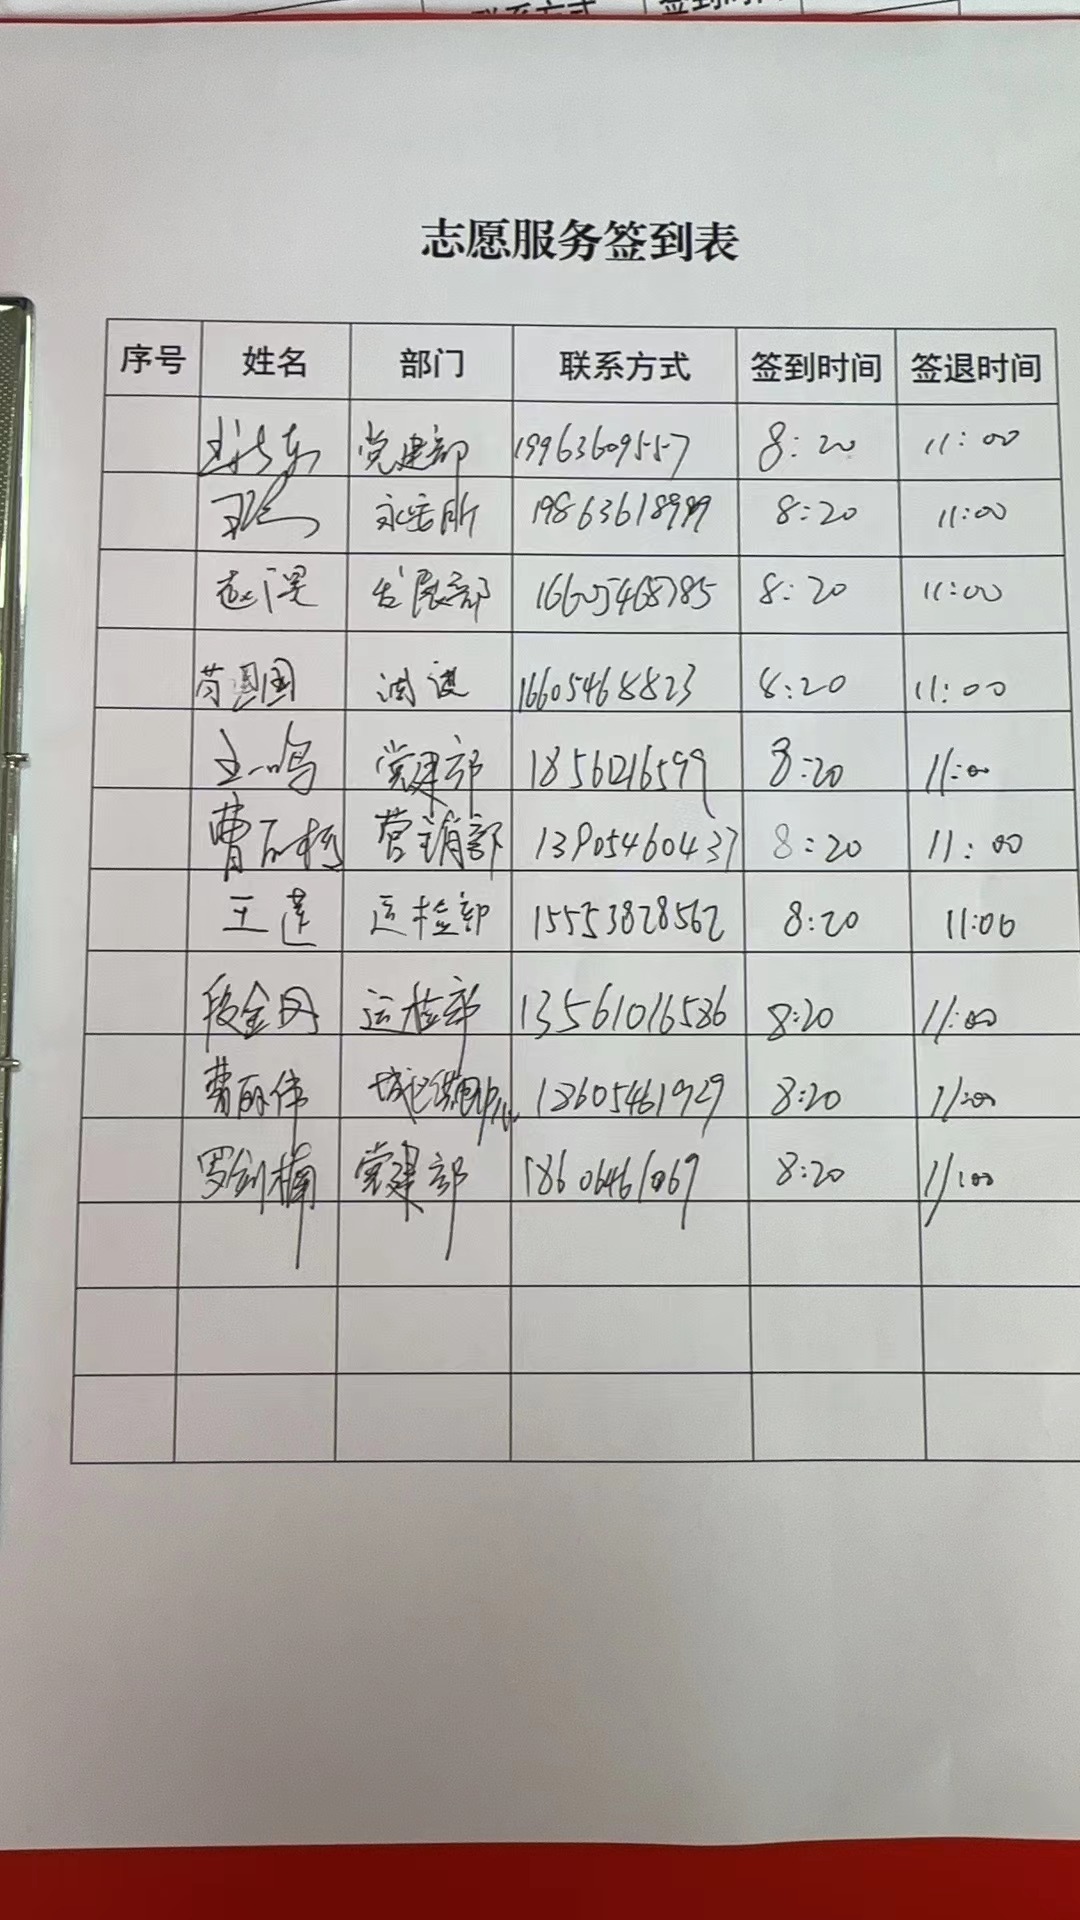 联系方式 签到时间
志愿服务签到表
序号 姓名 部门 联系方式 签到时间 签退时间
党建部 19963609557 8:20 11:00
8:20 11:00
发展部 16605468785 8:20 11:00
16605468823 8:20 11:00
王一鸣 党建部 18561216599 8:20 11:00
曹 营销部 13905460437 8:20 11:00
王莲 运检部 15553828562 8:20 11:00
段金网 运检部 13561016586 8:20 11:00
曹丽伟 13605461929 8:20 11:00
罗剑楠 党建部 18606461069 8:20 11:00